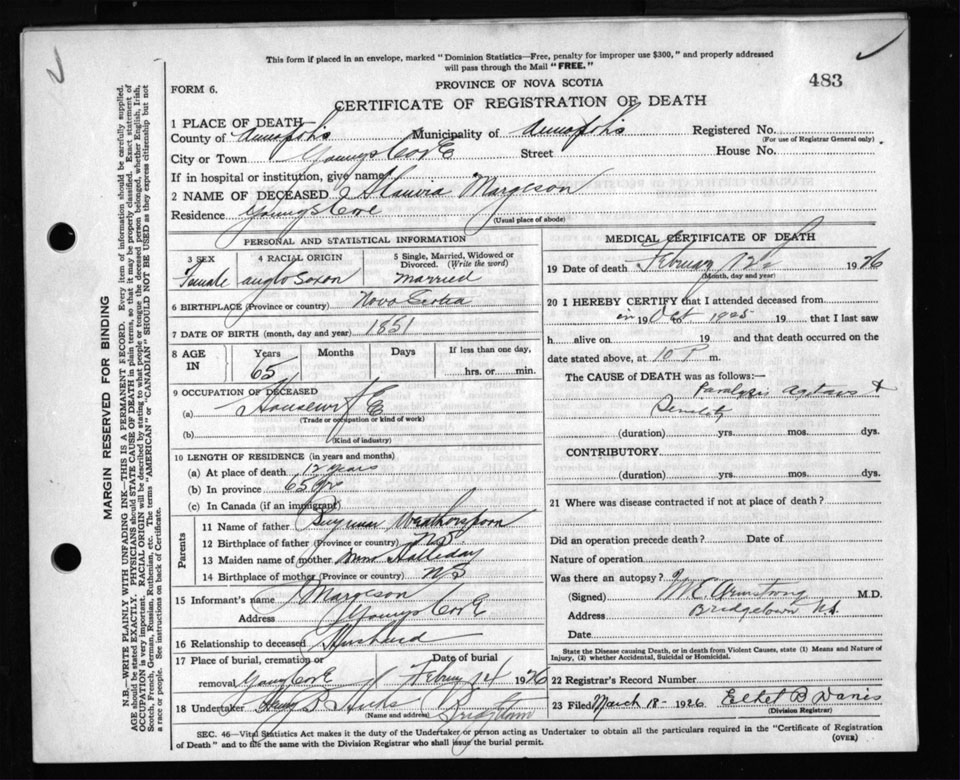 This form if placed in an envelope, marked "Dominion Statistics—Free, penalty for improper use $300," and properly addressed
will pass through the Mail "FREE."
PROVINCE OF NOVA SCOTIA
483
FORM 6.
CERTIFICATE OF REGISTRATION OF DEATH
1 PLACE OF DEATH
County of Annapolis Municipality of Annapolis Registered No.
(For use of Registrar General only)
City or Town Youngs Cove Street House No.
If in hospital or institution, give name
2 NAME OF DECEASED Margeson
Residence Youngs Cove
(Usual place of abode)
PERSONAL AND STATISTICAL INFORMATION
3 SEX 4 RACIAL ORIGIN 5 Single, Married, Widowed or Divorced. (Write the word)
Female anglo Saxon Married
6 BIRTHPLACE (Province or country) Nova Scotia
7 DATE OF BIRTH (month, day and year) 1851
8 AGE IN Years Months Days If less than one day,
65 hrs. or min.
9 OCCUPATION OF DECEASED
(a) Housewife
(Trade or occupation or kind of work)
(b)
(Kind of industry)
10 LENGTH OF RESIDENCE (in years and months)
(a) At place of death 12 years
(b) In province 65 yrs
(c) In Canada (if an immigrant)
Parents
11 Name of father
12 Birthplace of father (Province or country) NS
13 Maiden name of mother Halliday
14 Birthplace of mother (Province or country) NS
15 Informant's name Margeson
Address Youngs Cove
16 Relationship to deceased Husband
17 Place of burial, cremation or Date of burial
removal Young Cove 14 1926
18 Undertaker Hicks
(Name and address)
MEDICAL CERTIFICATE OF DEATH
19 Date of death February 12 1926
(Month, day and year)
20 I HEREBY CERTIFY that I attended deceased from
in 19 Oct to 1925 19 that I last saw
h alive on 19 and that death occurred on the
date stated above, at 10 P m.
The CAUSE of DEATH was as follows:—
Paralysis agitans &
Senility
(duration) yrs. mos. dys.
CONTRIBUTORY
(duration) yrs. mos. dys.
21 Where was disease contracted if not at place of death?
Did an operation precede death? Date of
Nature of operation
Was there an autopsy?
(Signed) Armstrong M.D.
Address Bridgetown N.S.
Date
State the Disease causing Death, or in death from Violent Causes, state (1) Means and Nature of
Injury, (2) whether Accidental, Suicidal or Homicidal.
22 Registrar's Record Number
23 Filed March 18 - 1926 B Davies
(Division Registrar)
SEC. 46—Vital Statistics Act makes it the duty of the Undertaker or person acting as Undertaker to obtain all the particulars required in the "Certificate of Registration
of Death" and to file the same with the Division Registrar who shall issue the burial permit.
(OVER)
MARGIN RESERVED FOR BINDING
N.B.—WRITE PLAINLY WITH UNFADING INK—THIS IS A PERMANENT RECORD. Every item of information should be carefully supplied.
AGE should be stated EXACTLY. PHYSICIANS should STATE CAUSE OF DEATH in plain terms, so that it may be properly classified. Exact statement of
OCCUPATION is very important. RACIAL ORIGIN will be described by stating to what people or tongue the deceased person belonged, whether English, Irish,
Scotch, French, German, Russian, Ruthenian, etc. The terms "AMERICAN" or "CANADIAN" SHOULD NOT BE USED as they express citizenship but not
a race or people. See instructions on back of Certificate.